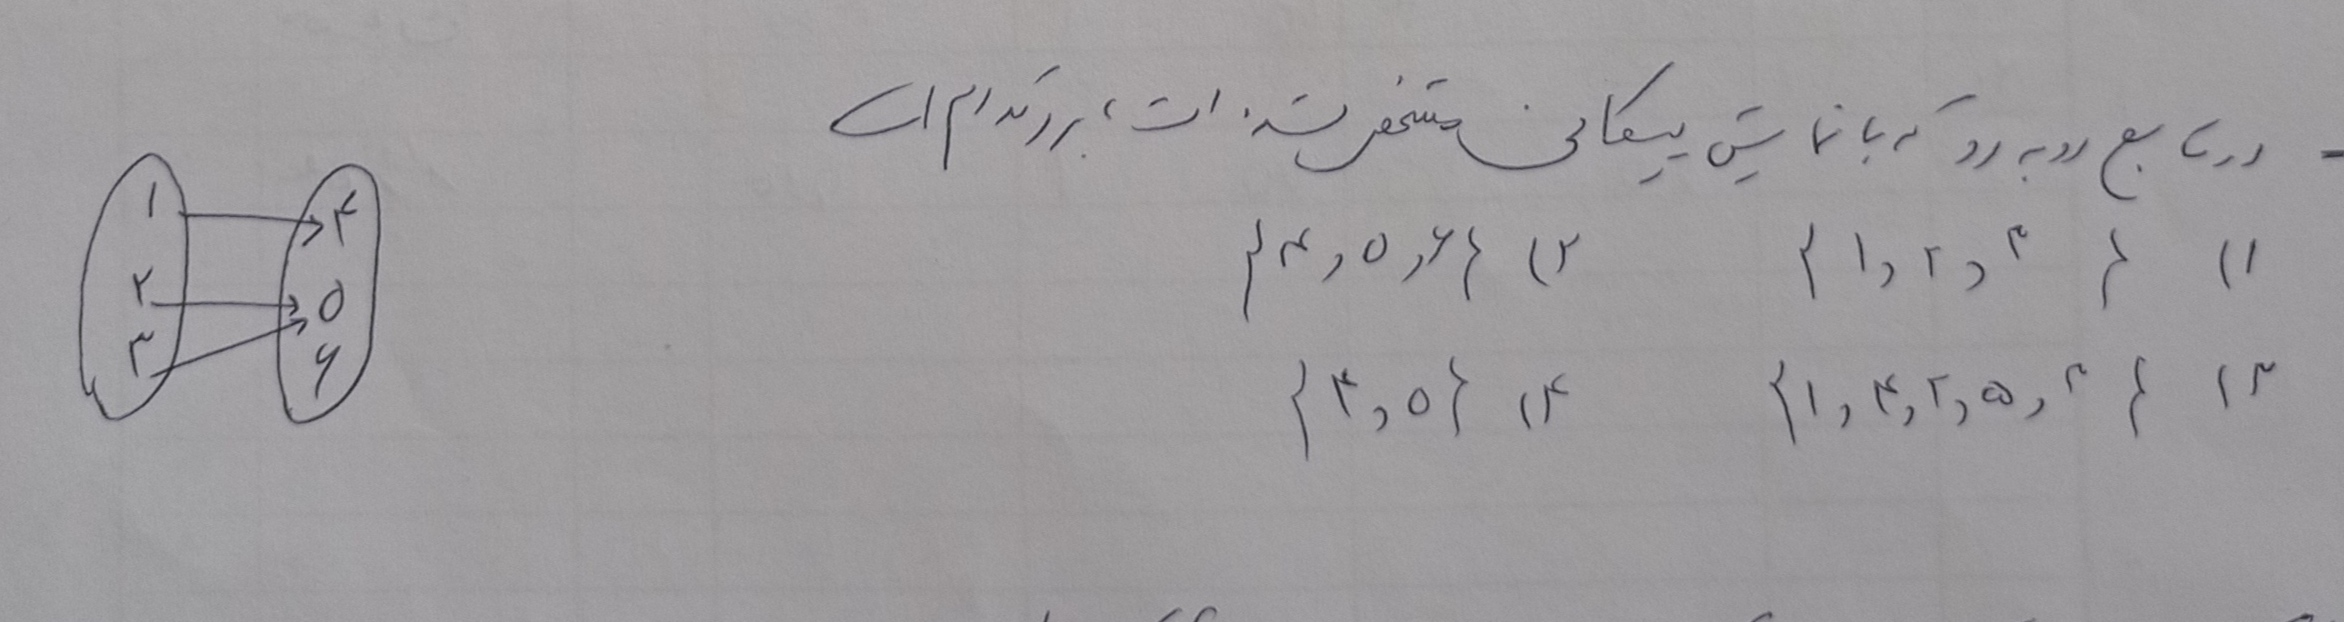 - در تابع روبه رو که با نمایش پیکانی مشخص شده است، برد کدام است
۱) {۱,۲,۳} ۲) {۴,۵,۶}
۳) {۱,۴,۲,۵,۳} ۴) {۴,۵}
۱ ۴
۲ ۵
۳ ۶